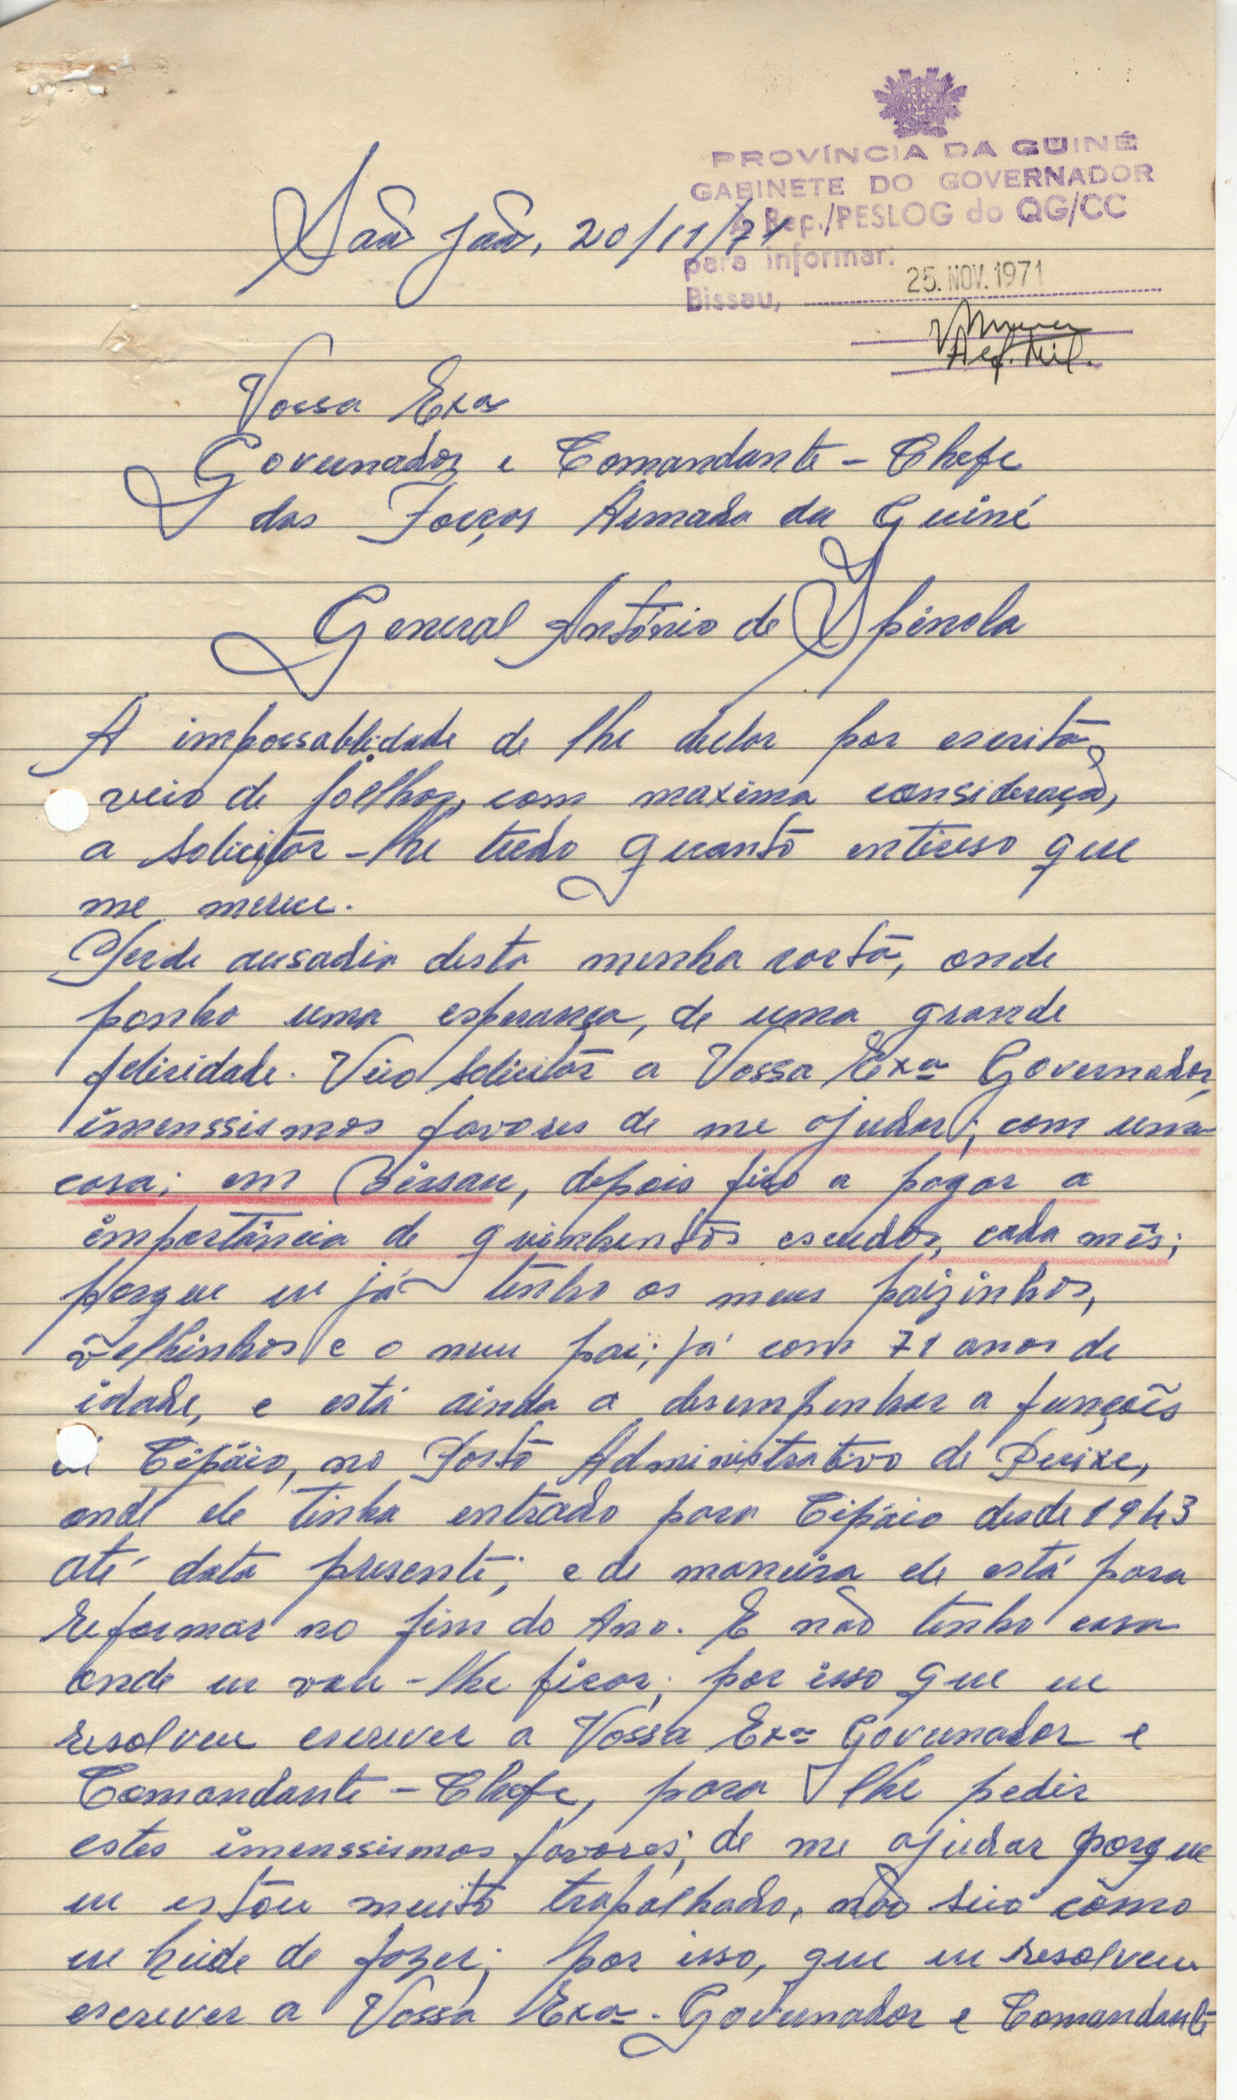 PROVÍNCIA DA GUINÉ
GABINETE DO GOVERNADOR
À Rep./PESLOG do QG/CC
para informar.
Bissau, 25. NOV. 1971
São João, 20/11/71
Vossa Exa
Governador e Comandante-Chefe
das Forças Armada da Guiné
General António de Spinola
A impossablidade de lhe declar por escrito
veio de joelhos, com maxima consideração,
a solicitar-lhe tudo quanto enticeso que
me merece.
Perde ausadia desta minha carta, onde
ponho uma esperança, de uma grande
felicidade. Vêio solicitar a Vossa Exa Governador,
imenssiumos favores de me ajudar; com uma
casa; em Bissau, depois fico a pagar a
importância de quinhentos escudos, cada mês;
porque eu já tenho os meus paizinhos,
velhinhos e o meu pai; já com 71 anos de
idade, e está ainda a desempenhar a funções
Cipáio, no Posto Administrativo de
onde ele tinha entrado para Cipáio desde 1943
até data presente; e de maneira ele está para
reformar no fim do Ano. E não tenho casa
onde eu vou-lhe ficar; por isso que eu
resolveu escrever a Vossa Exa Governador e
Comandante-Chefe, para lhe pedir
estes imenssiumos favores; de me ajudar porque
eu estou muito trapalhado, não seio como
eu heide de fazer; por isso, que eu resolveu
escrever a Vossa Exa. Governador e Comandante